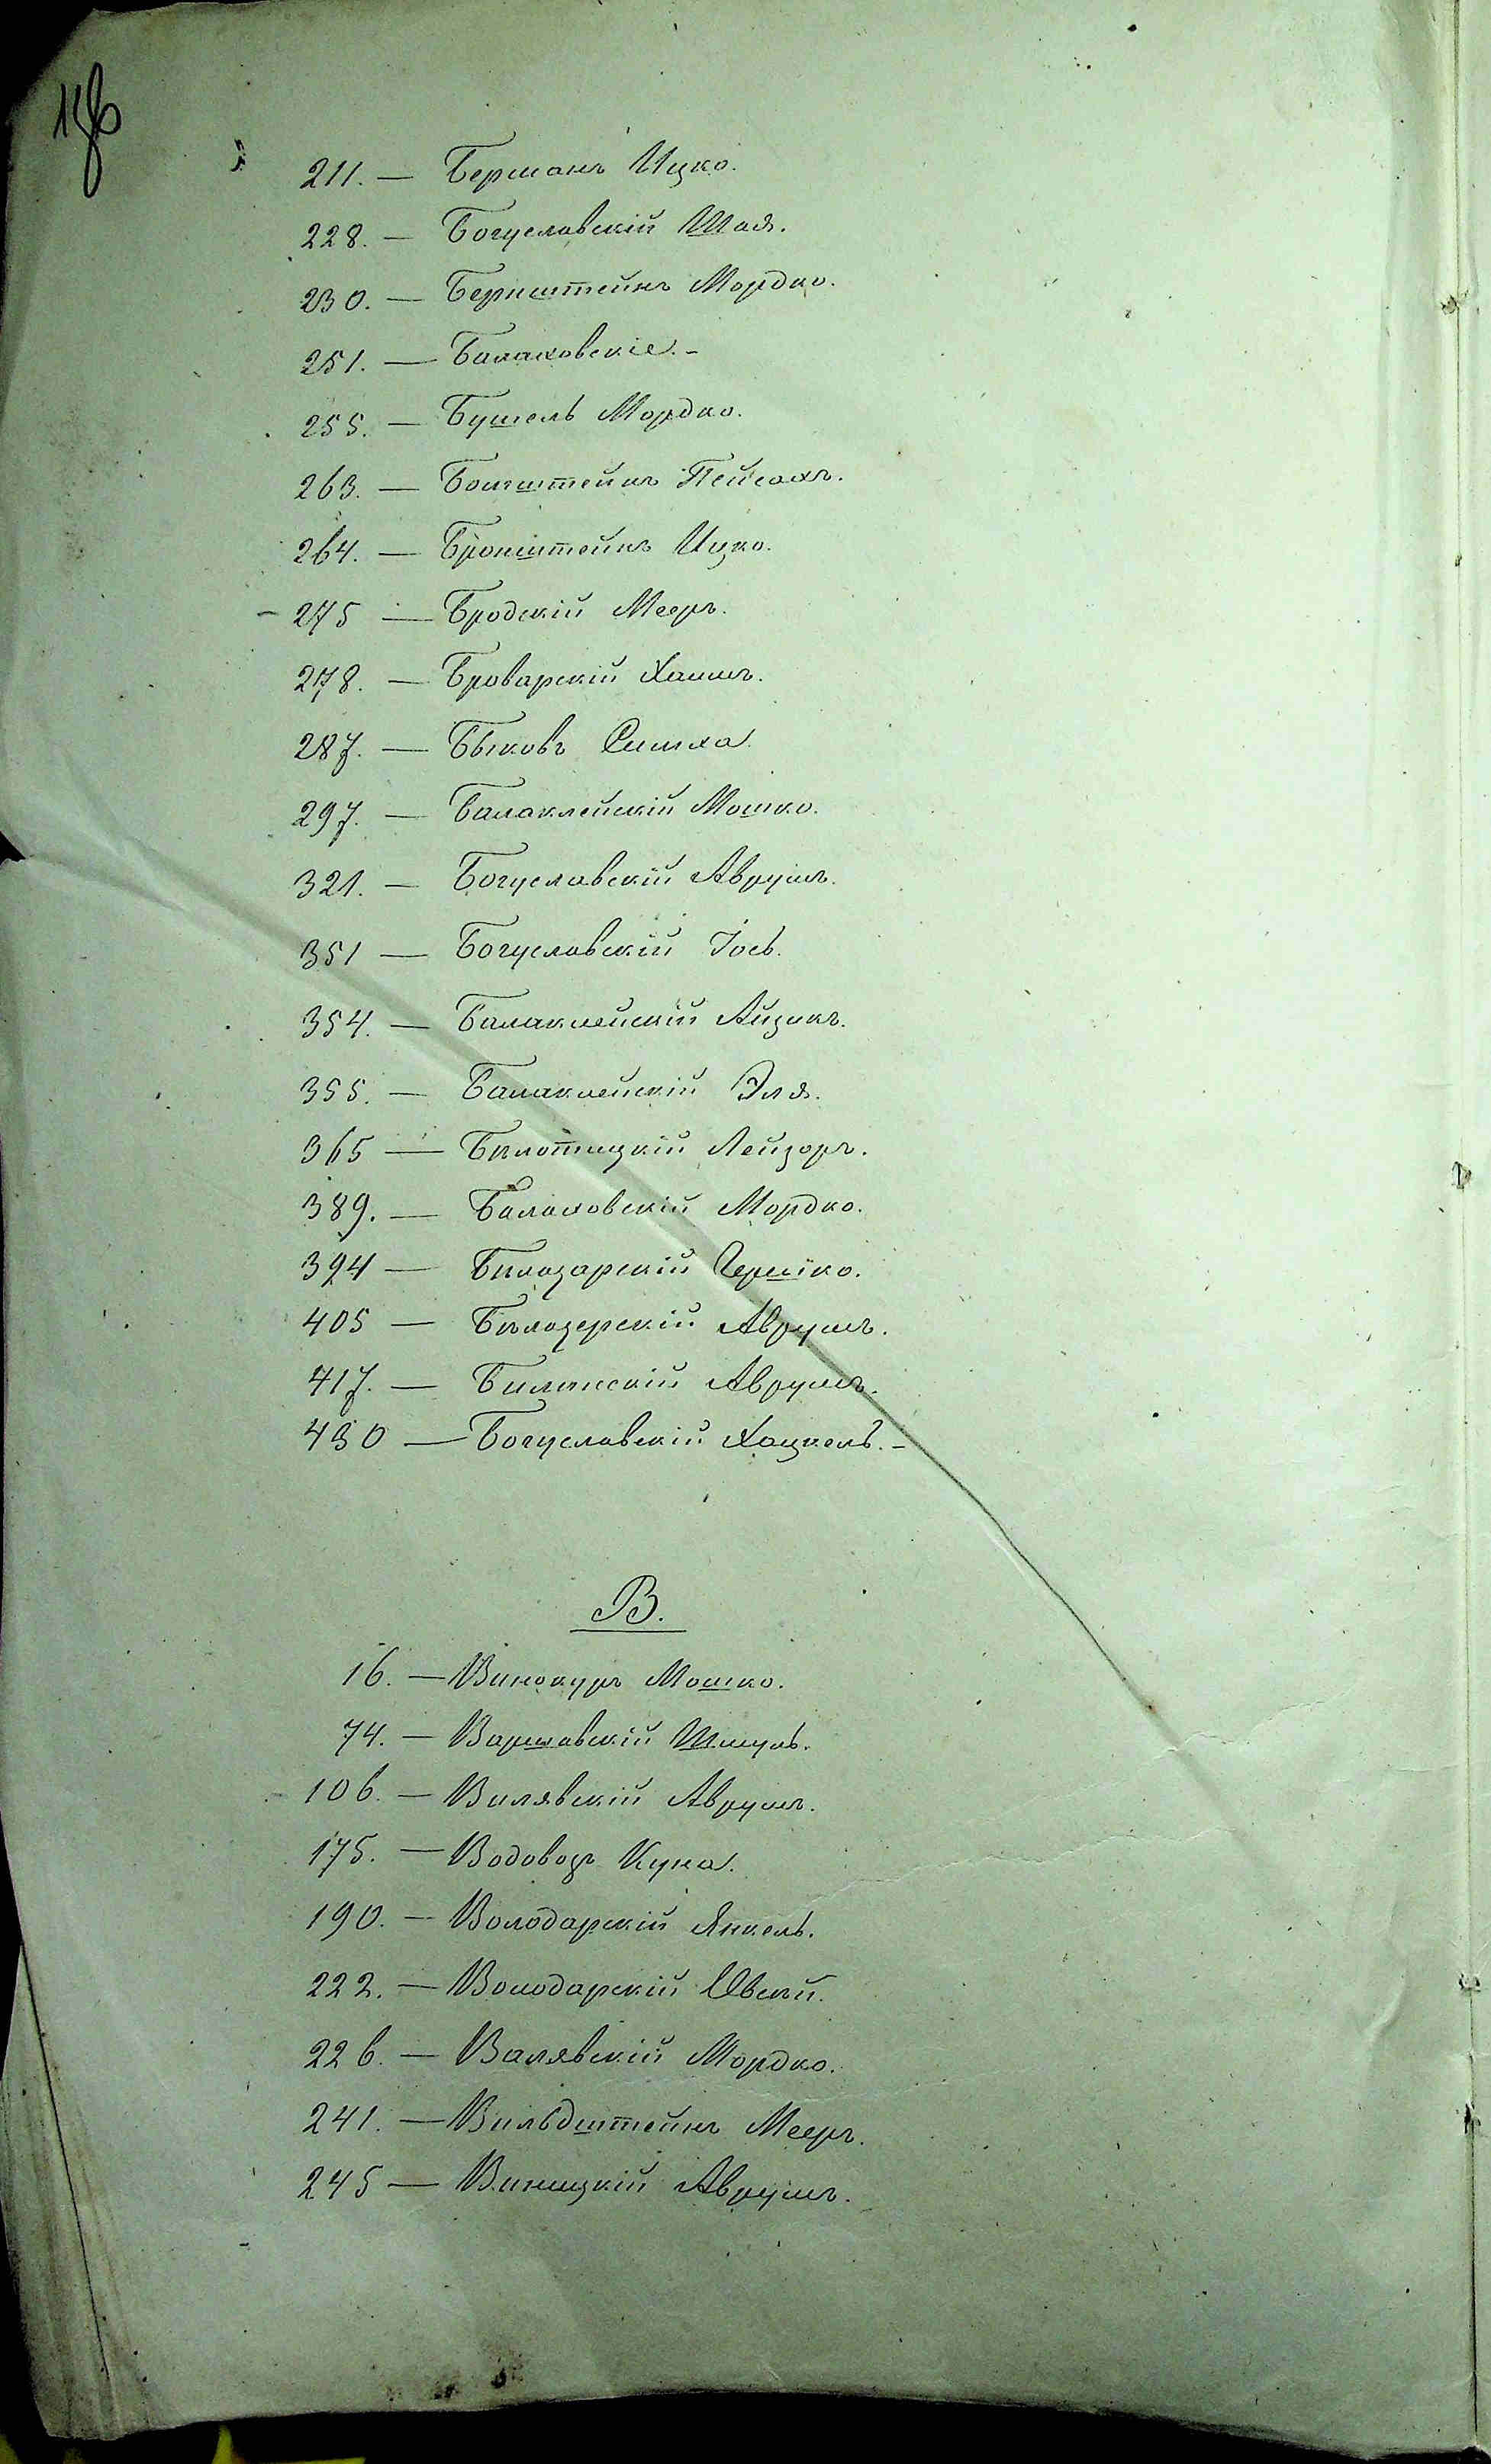 211. — Берманъ Ицко.
228. — Богуславскій Шая.
230. — Бернштейнъ Мордко.
251. — Балаховскіе. -
255. — Бушель Мордко.
263. — Боимштейнъ Пейсахъ.
264. — Бронштейнъ Ицко.
- 275 — Бродскій Мееръ.
278. — Броварскій Хаимъ.
287. — Быковъ Симха.
297. — Балаклейскій Мошко.
321. — Богуславскій Аврумъ.
351 — Богуславскій Іось.
354. — Балаклейскій Айзикъ.
355. — Балаклейскій Эля.
365 — Лейзоръ.
389. — Балаховскій Мордко.
394 — Билозарскій Гершко.
405 — Бѣлозерскій Аврумъ.
417. — Билинскій Аврумъ.
430 — Богуславскій Хацкель. -
В.
16. — Винокуръ Мошко.
74. — Варшавскій Шмуль.
106. — Вилявскій Аврумъ.
175. — Водовозъ Куна.
190. — Володарскій Янкель.
222. — Володарскій Овсѣй.
226. — Валявскій Мордко.
241. — Вильдштейнъ Мееръ.
245 — Виницкій Аврумъ.